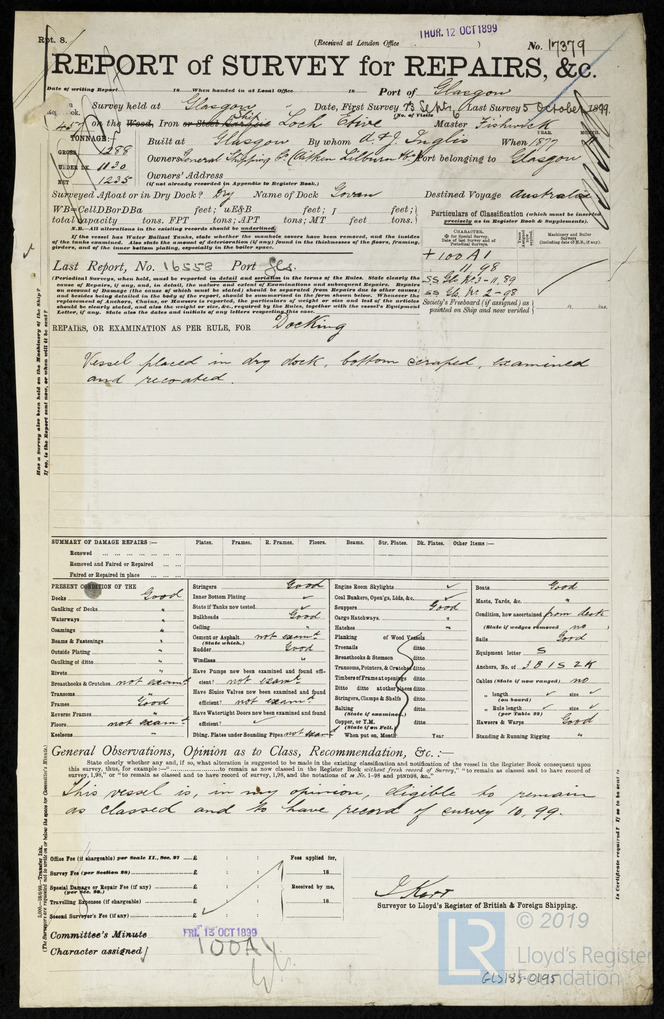 Rpt. 8.
(Received at London Office THUR. 12 OCT 1899 )
No. 17379
REPORT of SURVEY for REPAIRS, &c.
Date of writing Report 18 When handed in at Local Office 18 Port of Glasgow
Survey held at Glasgow Date, First Survey 13 Sept. Last Survey 5 October 1899.
(No. of Visits 6
on the Wood, Iron or Steel Barque Ship Loch Etive Master Fishwick
TONNAGE:—
GROSS 1288
UNDER DK. 1130
NET 1235
Built at Glasgow By whom A. & J. Inglis When 1877
YEAR. MONTH.
Owners General Shipping Co (Aitken Lilburn & Co) Port belonging to Glasgow
Owners' Address
(if not already recorded in Appendix to Register Book.)
Surveyed Afloat or in Dry Dock? Dry Name of Dock Govan Destined Voyage Australia
WB=CellDBorDBa feet; uE&B feet; f feet;
total capacity tons. FPT tons; APT tons; MT feet tons.
N.B.—All alterations in the existing records should be underlined.
If the vessel has Water Ballast Tanks, state whether the manhole covers have been removed, and the insides
of the tanks examined. Also state the amount of deterioration (if any) found in the thicknesses of the floors, framing,
and of the inner bottom plating, especially in the boiler space.
Particulars of Classification (which must be inserted
precisely as in Register Book & Supplements).
CHARACTER.
Machinery and Boiler
+ 100 A1
11, 98
SS Gls. No 3-11, 89
SS Gls. No 2-98
Society's Freeboard (if assigned) as
painted on Ship and now verified
Last Report, No. 16558 Port Gls.
(Periodical Surveys, when held, must be reported in detail and seriatim in the terms of the Rules. State clearly the
cause of Repairs, if any, and, in detail, the nature and extent of Examinations and subsequent Repairs. Repairs
on account of Damage (the cause of which must be stated) should be separated from Repairs due to other causes;
and besides being detailed in the body of the report, should be summarized in the form shewn below. Whenever the
replacement of Anchors, Chains, or Hawsers is reported, the particulars of weight or size and test of the articles
should be clearly stated, and also the weight or size, &c., required by the Rules, together with the vessel's Equipment
Letter, if any. State also the dates and initials of any letters respecting this case.
REPAIRS, OR EXAMINATION AS PER RULE, FOR Docking
Vessel placed in dry dock, bottom scraped, examined
and recoated.
Has a Survey also been held on the Machinery of the Ship?
If so, is the Report sent now, or when will it be sent?
SUMMARY OF DAMAGE REPAIRS :— Plates. Frames. R. Frames. Floors. Beams. Str. Plates. Dk. Plates. Other Items :—
Renewed
Removed and Faired or Repaired
Faired or Repaired in place
PRESENT CONDITION OF THE
Decks Good
Caulking of Decks "
Waterways "
Coamings "
Beams & Fastenings "
Outside Plating "
Caulking of ditto "
Rivets "
Breasthooks & Crutches not examd.
Transoms "
Frames Good
Reverse Frames "
Floors not examd.
Keelsons "
Stringers Good
Inner Bottom Plating
State if Tanks now tested
Bulkheads Good
Ceiling "
Cement or Asphalt not examd.
(State which.)
Rudder Good
Windlass "
Have Pumps now been examined and found effi-
cient? not examd.
Have Sluice Valves now been examined and found
efficient? not examd.
Have Watertight Doors now been examined and found
efficient?
Dblng. Plates under Sounding Pipes not examd.
Engine Room Skylights
Coal Bunkers, Open'gs, Lids, &c.
Scuppers Good
Cargo Hatchways "
Hatches "
Planking of Wood Vessels
Treenails ditto
Breasthooks & Stemson ditto
Transoms, Pointers, & Crutches ditto
Timbers of Frame at openings ditto
Ditto ditto at other places ditto
Stringers, Clamps & Shelfs ditto
Salting ditto
(State if examined.)
Copper, or Y.M.
(State if on Felt.)
When put on, Month Year
Boats Good
Masts, Yards, &c. "
Condition, how ascertained from deck
(State if wedges removed no
Sails Good
Equipment letter S
Anchors, No. of 3B 1S 2K
Cables (State if now ranged) no
" length size
(on board)
" Rule length size
(per Table 22)
Hawsers & Warps Good
Standing & Running Rigging "
General Observations, Opinion as to Class, Recommendation, &c. :—
State clearly whether any, and if, so, what alteration is suggested to be made in the existing classification and notification of the vessel in the Register Book consequent upon
this survey, thus, for example:— to remain as now classed in the Register Book without fresh record of Survey," "to remain as classed and to have record of
survey, 1,98," or "to remain as classed and to have record of survey, 1,98, and the notations of SS No. 1-98 and PTND98, &c."
This vessel is, in my opinion, eligible to remain
as classed and to have record of survey 10, 99.
Office Fee (if chargeable) per Scale II., Sec. 27 £ : :
Survey Fee (per Section 28) £ : :
Special Damage or Repair Fee (if any) £ : :
(per Sec. 28.)
Travelling Expenses (if chargeable) £ : :
Second Surveyor's Fee (if any) £ : :
Fees applied for,
18
Received by me,
18
J Kerr
Surveyor to Lloyd's Register of British & Foreign Shipping.
Committee's Minute FRI. 13 OCT 1899
Character assigned 100A1
Is Certificate required? If so to be sent to
© 2019
LR Lloyd's Register
Foundation
GLS185-0195